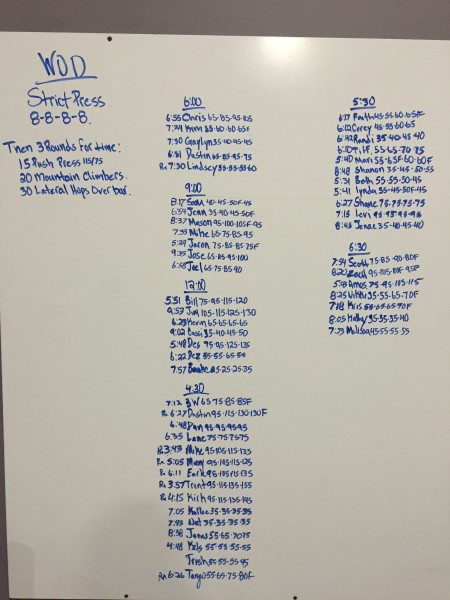 WOD
Strict Press
8-8-8-8.
Then 3 Rounds For time:
15 Push Press 115/75
20 Mountain Climbers.
30 Lateral Hops Over bar.
6:00
6:55 Chris 65-85-95-105
7:24 Kim 55-60-60-65F
7:50 Gaylyn 35-40-45-45
6:31 Dustin 65-85-95-75
Rx 7:30 Lindsey 55-55-55-60
9:00
8:17 Sean 40-45-50F-45
6:34 Jenn 35-40-45-50F
8:37 Mason 95-100-105F-95
7:53 Mike 65-75-85-95
5:29 Jaron 75-85-85-75F
9:35 Jose 65-85-95-100
6:58 Joel 65-75-85-90
12:00
5:51 Bill 75-95-115-120
9:53 Jim 105-115-125-130
6:23 Kerm 65-65-65-65
9:02 Cassi 35-40-45-50
5:48 Des 75-95-125-135
6:22 Dez 55-55-65-55
7:57 25-25-35
4:30
7:12 BW 65-75-85-85F
Rx 6:27 Dustin 95-115-130-130F
6:48 Dan 95-95-95-95
6:35 Lane 75-75-75-75
Rx 3:43 Mike 95-105-115-135
Rx 5:05 Manny 95-105-115-125
Rx 6:11 Earl 95-105-115-135
Rx 3:57 Trent 95-115-135-155
Rx 4:15 Rich 95-115-135-145
7:05 Kallee 35-35-35-35
7:43 Nat 35-35-35-35
8:38 James 55-65-70-75
4:48 Kels 55-55-55-55
Trish 55-55-55-45
Rx 6:26 Tango 55-65-75-80F
5:30
6:27 Faith 45-55-60-65F
6:02 Corey 45-55-60-65
6:42 Randi 35-40-45-40
6:10 Tiff 55-65-70-75
5:40 Mari 55-65F-60-60F
8:48 Shanon 35-45-50-55
5:31 Beth 55-55-50-45
5:41 Lynda 55-45-50F-45
6:27 Shane 75-75-75-75
7:15 Levi 95-95-95-95
8:43 Jenae 35-40-45-40
6:30
7:54 Scott 75-85-90-80F
8:20 Zach 95-105-110F-95F
5:18 Amos 75-95-105-115
8:25 Nikki 35-55-65-70F
7:18 Kris 55-65-65-70F
8:05 Mattey 35-35-35-40
7:53 Melissa 45-55-55-55